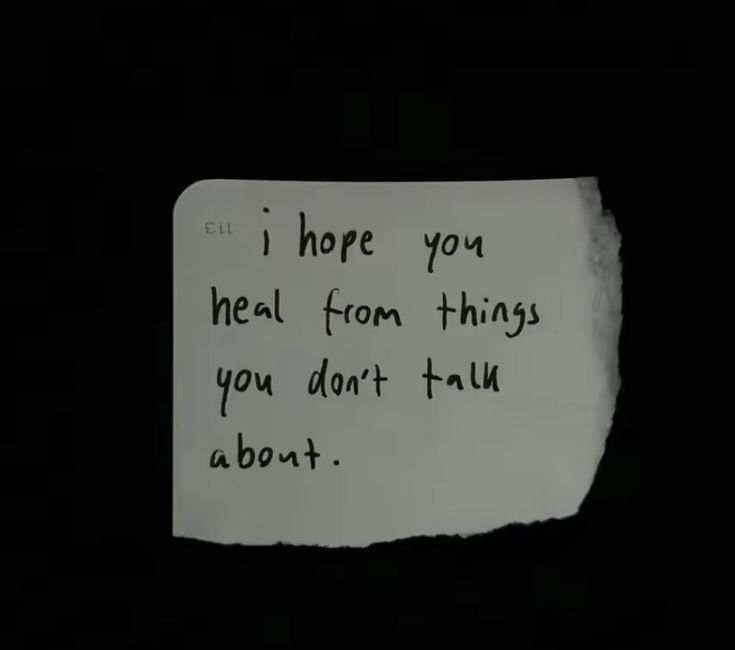 113
i hope you
heal from things
you don't talk
about.